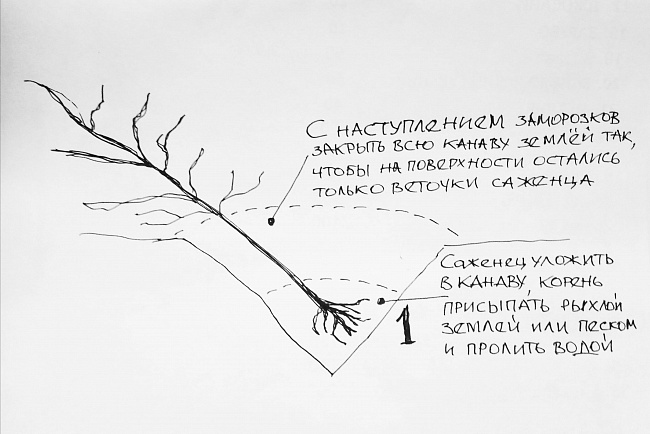 С НАСТУПЛЕНИЕМ ЗАМОРОЗКОВ
ЗАКРЫТЬ ВСЮ КАНАВУ ЗЕМЛЁЙ ТАК,
ЧТОБЫ НА ПОВЕРХНОСТИ ОСТАЛИСЬ
ТОЛЬКО ВЕТОЧКИ САЖЕНЦА
САЖЕНЕЦ УЛОЖИТЬ
В КАНАВУ, КОРЕНЬ
ПРИСЫПАТЬ РЫХЛОЙ
ЗЕМЛЕЙ ИЛИ ПЕСКОМ
И ПРОЛИТЬ ВОДОЙ
1